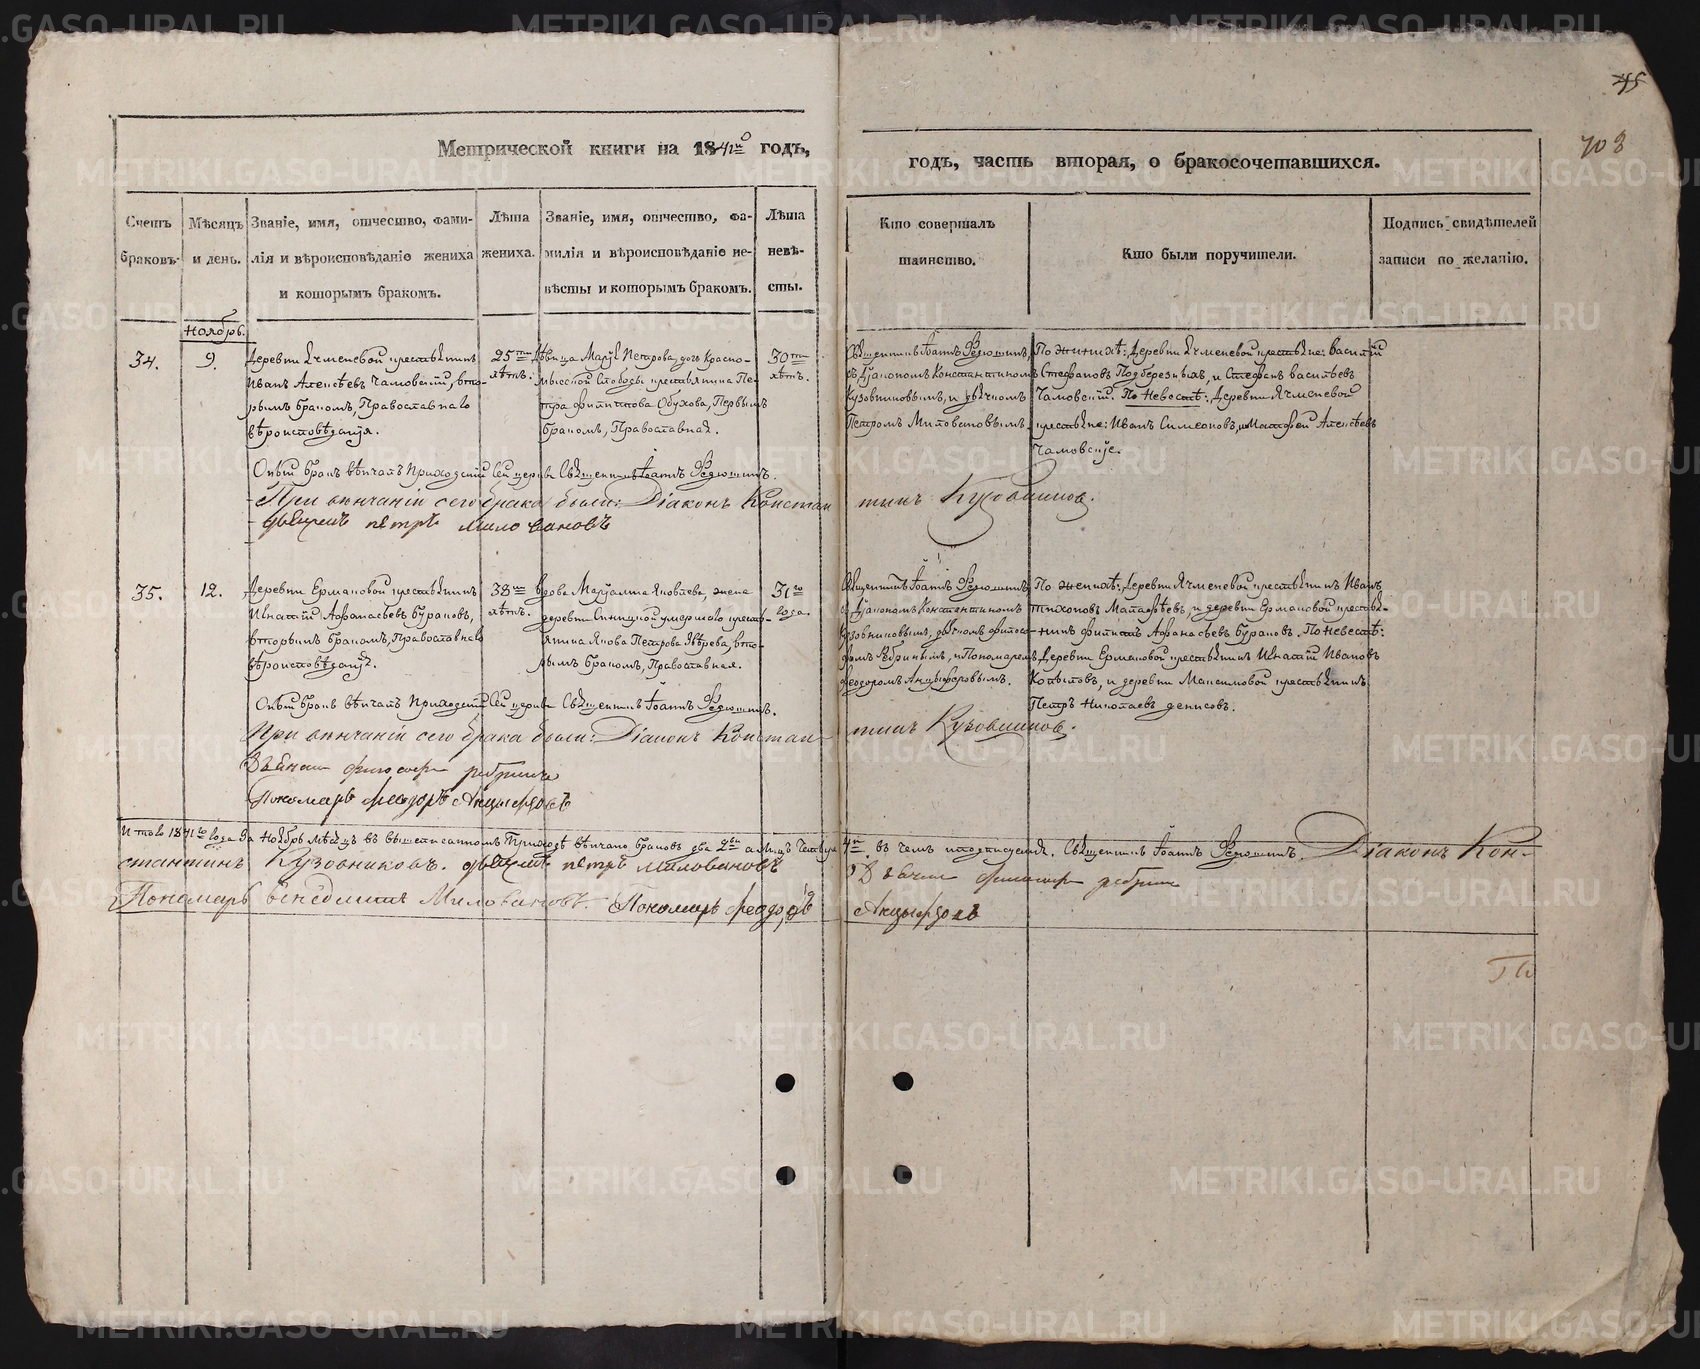 45
703
Метрической книги на 1841 годъ,
годъ, часть вторая, о бракосочетавшихся.
Счетъ браковъ.
Мѣсяцъ и день.
Званіе, имя, отчество, фамилія и вѣроисповѣданіе жениха и которымъ бракомъ.
Лѣта жениха.
Званіе, имя, отчество, фамилія и вѣроисповѣданіе невѣсты и которымъ бракомъ.
Лѣта невѣсты.
Кто совершалъ таинство.
Кто были поручители.
Подпись свидѣтелей записи по желанію.
Ноябрь.
34.
9.
Деревни Ячменевой крестьянинъ
Иванъ Алексѣевъ Чамовскій, вто-
рымъ бракомъ, Православнаго
вѣроисповѣданія.
25
лѣтъ.
Дѣвица Марія Петрова, дочь Красно-
мысской Слободы крестьянина Пе-
тра Филиппова Обухова, Первымъ
бракомъ, Православная.
30
лѣтъ.
Священникъ Іоаннъ
съ Діакономъ Константиномъ
Кузовниковымъ, и дьячкомъ
Петромъ Миловановымъ
По женихѣ: Деревни Ячменевой крестьяне: Василій
Стефановъ Подберезныхъ, и Стефанъ Васильевъ
Чамовскій. По Невестѣ: Деревни Ячменевой
крестьяне: Иванъ Симеоновъ, и Матфей Алексѣевъ
Чамовскіе.
Оный бракъ вѣнчалъ Приходскій сей церкви Священникъ Іоаннъ
При вѣнчаніи сего брака были: Діаконъ Констан
тинъ Кузовниковъ.
дьячекъ петръ миловановъ
35.
12.
Деревни Ермаковой крестьянинъ
Игнатій Афанасьевъ Бурановъ,
вторымъ бракомъ, Православнаго
вѣроисповѣданія.
38
лѣтъ.
Вдова Маріамна Яковлева, жена
деревни умершаго кресть-
янина Якова Петрова Звѣрева, вто-
рымъ бракомъ, Православная.
31
года.
Священникъ Іоаннъ
съ Діакономъ Константиномъ
Кузовниковымъ, дьячкомъ
и Пономаремъ
Феодоромъ Анцыферовымъ.
По женихѣ: Деревни Ячменевой крестьянинъ Иванъ
Тихоновъ и деревни Ермаковой крестья-
нинъ Филиппъ Афанасьевъ Бурановъ. По невестѣ:
Деревни Ермаковой крестьянинъ Игнатій Ивановъ
Копыловъ, и деревни Максимовой крестьянинъ
Петръ Николаевъ Денисовъ.
Оный бракъ вѣнчалъ Приходскій сей церкви Священникъ Іоаннъ
При вѣнчаніи сего брака были: Діаконъ Констан
тинъ Кузовниковъ.
Пономарь феодоръ Анцыферовъ
Итого 1841 года за Ноябрь мѣсяцъ въ вышеписанномъ Приходѣ вѣнчано браковъ два 2 а лицъ четыре 4. въ чемъ и подписуемся. Священникъ Іоаннъ Діаконъ Кон-
стантинъ Кузовниковъ. дьячекъ петръ миловановъ
Пономарь Венедиктъ Миловановъ. Пономарь феодоръ Анцыферовъ
METRIKI.GASO-URAL.RU